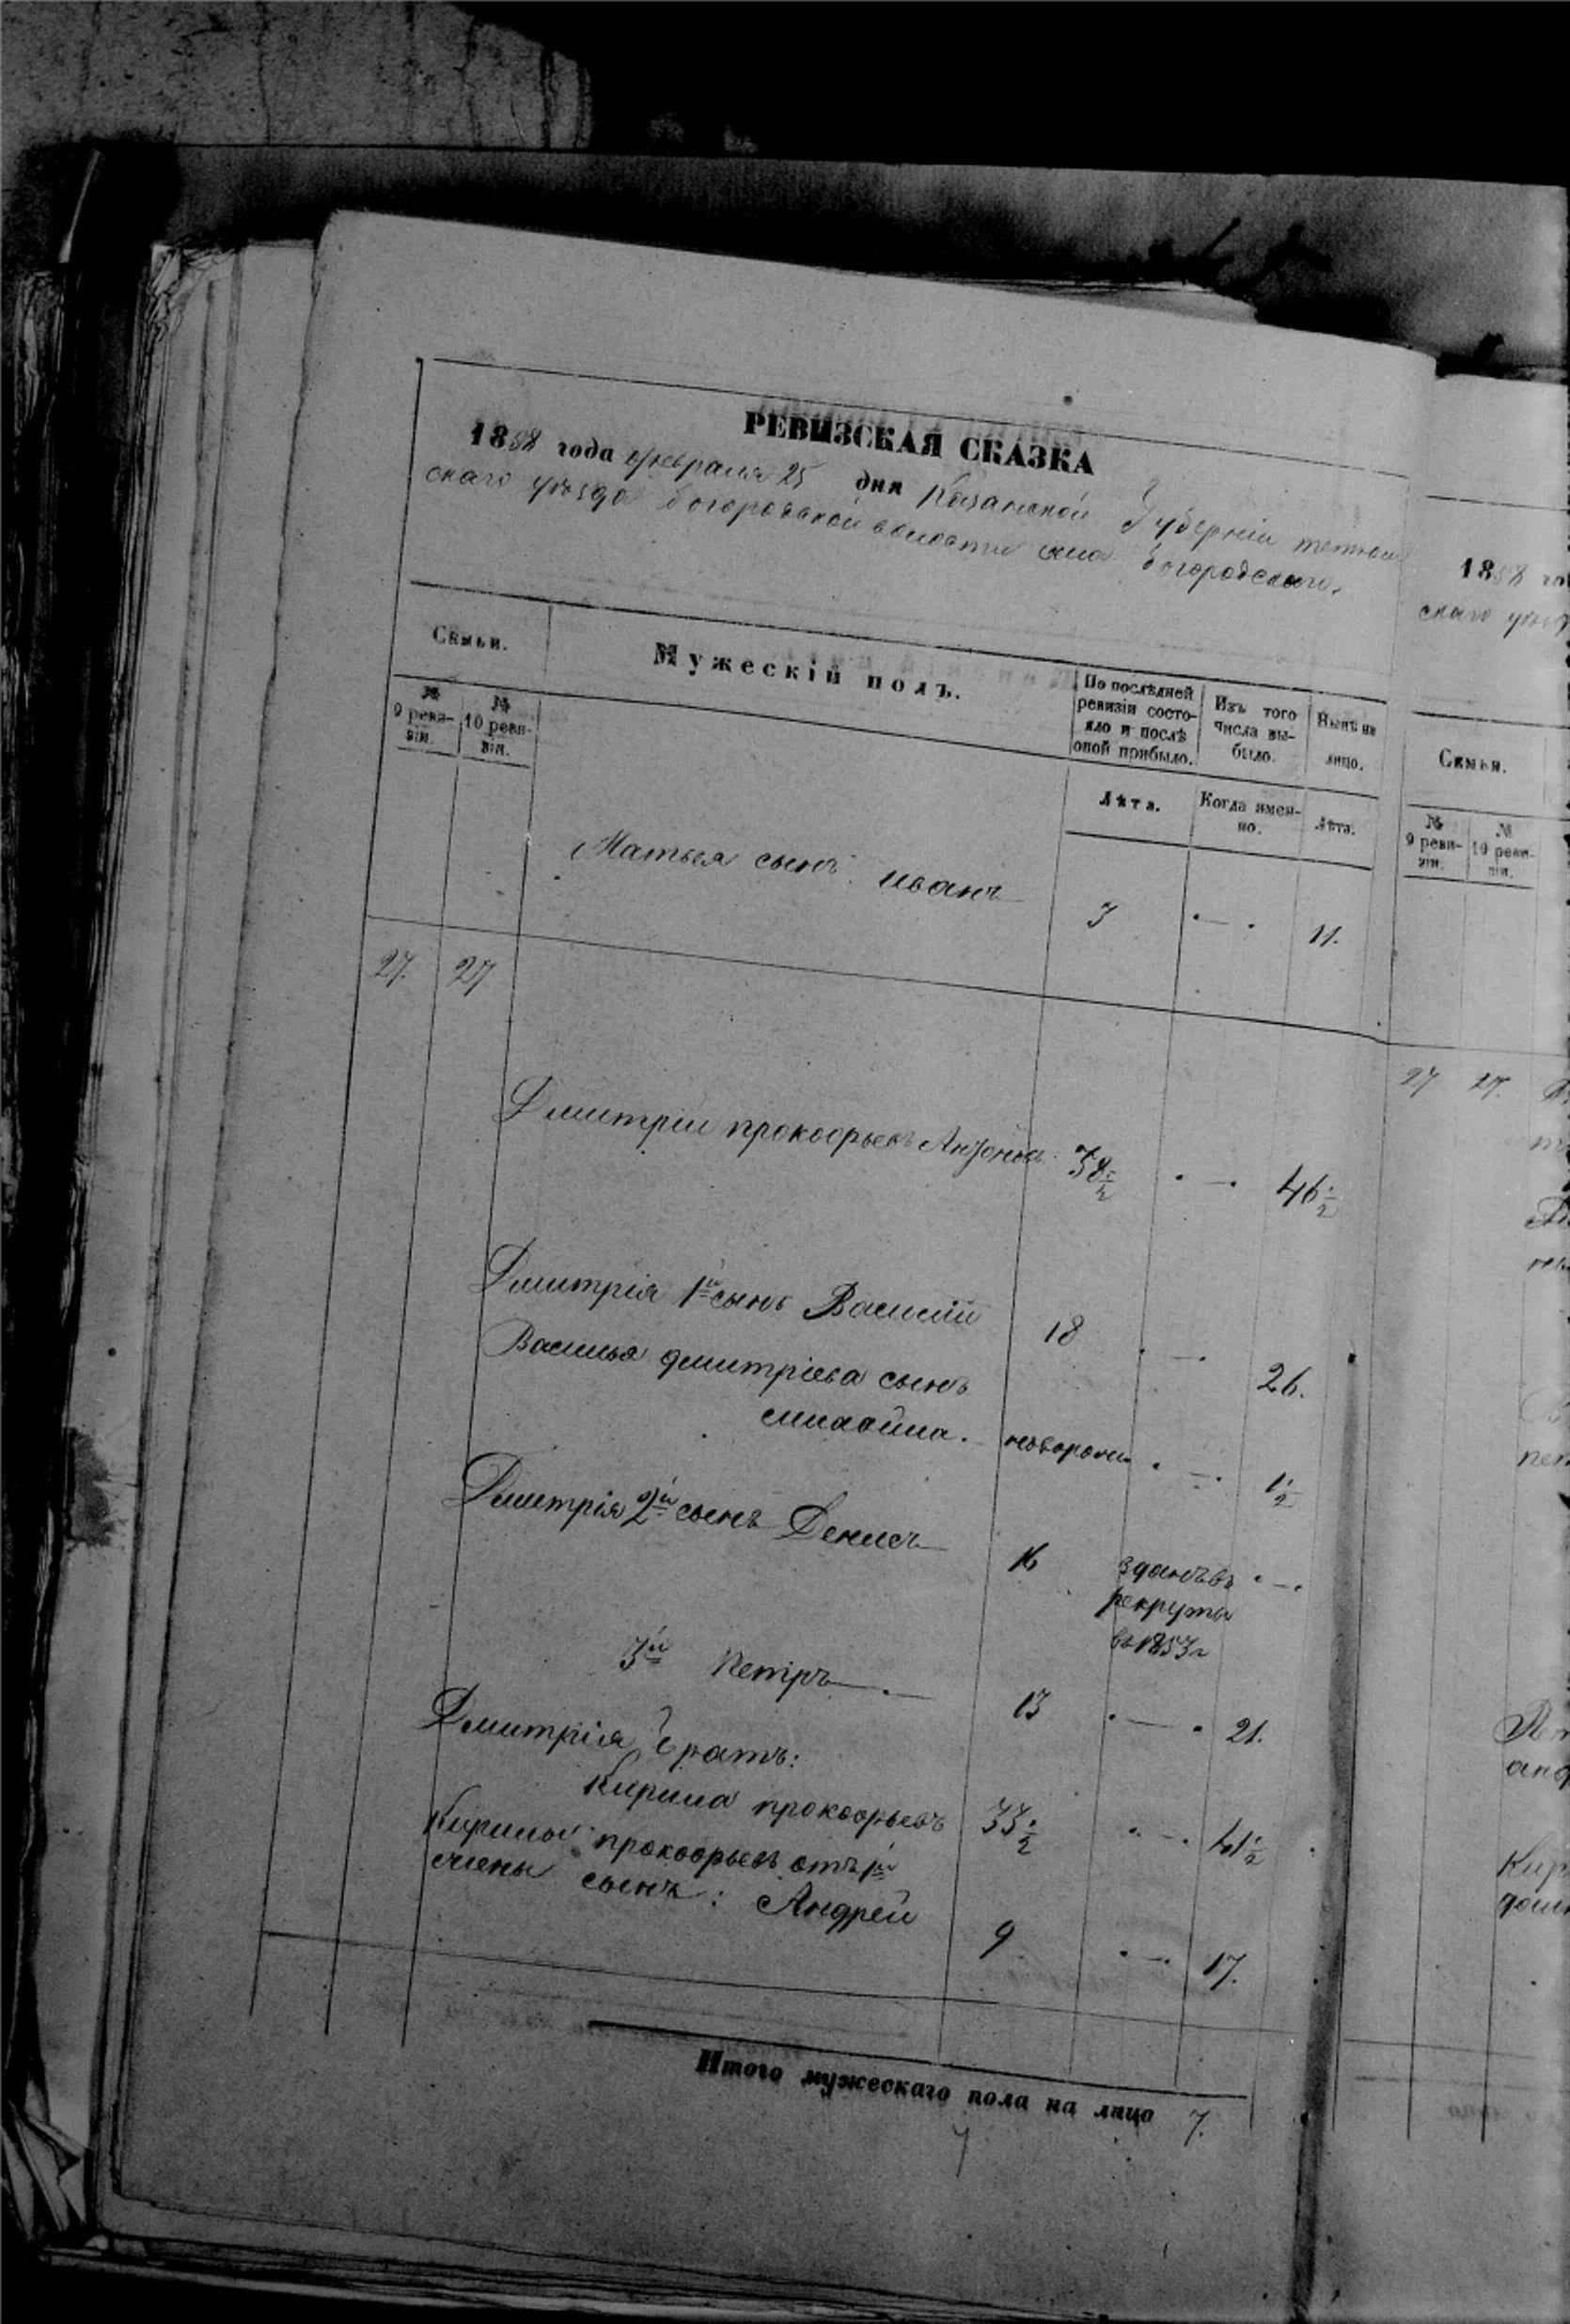 РЕВИЗСКАЯ СКАЗКА
1858 года февраля 25 дня Казанской Губернiи тетюш
скаго уѣзда богородской волости села богородскаго.
Семьи.
Мужескiй полъ.
По послѣдней ревизiи состояло и послѣ оной прибыло.
Изъ того числа выбыло.
Нынѣ на лицо.
№ 9 ревизiи.
№ 10 ревизiи.
Лѣта.
Когда именно.
Лѣта.
Матвея сынъ иванъ 3 11.
27. 27
Дмитрiй прокофьевъ 38 1/2 46 1/2
Дмитрiя 1й сынъ Василiй 18 26.
Василья дмитрiева сынъ
новорож 1/2
Дмитрiя 2й сынъ Денисъ 16 зданъ въ
рекруты
въ 1853 г
3й Петръ 13 21.
Дмитрiя братъ:
Кирила прокофьевъ 33 1/2 41 1/2
Кирилы прокофьева отъ 1й
жены сынъ: Андрей 9 17.
Итого мужескаго пола на лицо 7.
7
1858 го
скаго уѣзд
Семьи.
№ 9 ревизiи.
№ 10 ревизiи.
27 27.